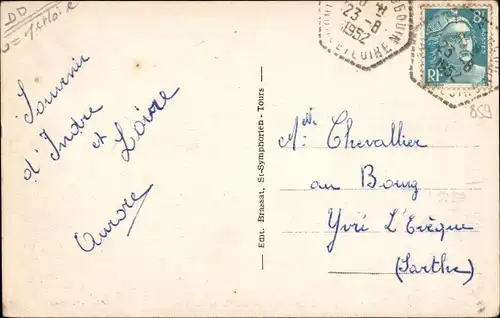 DD
Souvenir
d'Indre
et Loire
Aurore
Emt. Brassat, St-Symphorien - Tours
23 -8
1952
ET LOIRE
23 -8
1952
RF
859
Melle Chevallier
au Bourg
Yvré L'Evèque
(Sarthe)